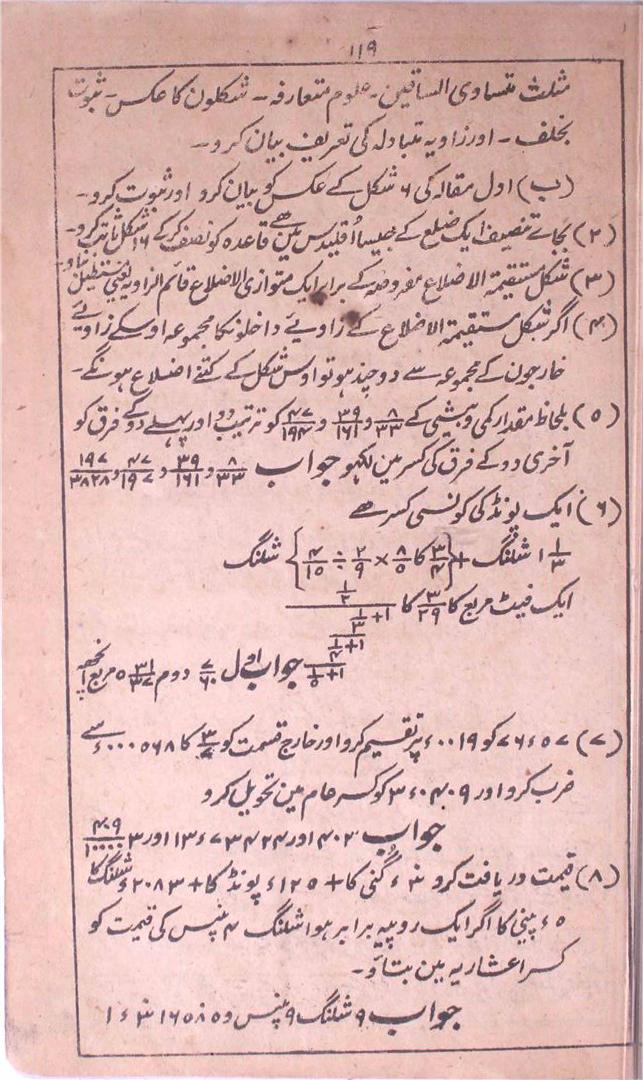 ۱۱۹
مثلث متساوی الساقین - علوم متعارفہ - شکلون کا عکس - ثبوت
بخلف - اور زاویہ متبادلہ کی تعریف بیان کرو -
(ب) اول مقالہ کی ۶ شکل کے عکس کو بیان کرو اور ثبوت کرو -
(۲) بجاے تنصیف ایک ضلع کے جیسا اقلیدس مین ہے قاعدہ کو نصف کر کے ۱۶ شکل ثابت کرو -
(۳) شکل مستقیمۃ الاضلاع مفروضہ کے برابر ایک متوازی الاضلاع قائم الزاویہ یعنی مستطیل بناو -
(۴) اگر شکل مستقیمۃ الاضلاع کے زاویے داخلونکا مجموعہ اوسکے زاویے
خارجون کے مجموعہ سے دوچند ہو تو اوس شکل کے کتنے اضلاع ہونگے -
(۵) بلحاظ مقدار کمی و بیشی کے ۸/۳۳ و ۳۹/۱۶۱ و ۴۷/۱۹۴ کو ترتیب دو اور پہلے دو کے فرق کو
آخری دو کے فرق کی کسر مین لکھو جواب ۸/۳۳ و ۳۹/۱۶۱ و ۴۷/۱۹۷ و ۱۹۷/۳۸۲۸
(۶) ایک پونڈ کی کونسی کسر ہے
۱ ۱/۳ شلنگ + {۳/۴ کا ۸/۵ × ۲/۹ ÷ ۴/۱۵} شلنگ
ایک فیٹ مربع کا ۳/۲۹ کا ۱/۲
۱ + ۱/۳
۱ + ۱/۴
۱ + ۱/۵
جواب اول ۷/۶۰ دوم ۵ ۳۱/۳۷ مربع انچھ
(۷) ۷۶۷ء۵۷ کو ۰۰۱۹ء پر تقسیم کرو اور خارج قسمت کو ۳/۷ کا ۰۰۰۵۶۸ء سے
ضرب کرو اور ۳ء۰۴۰۹ کو کسر عام مین تحویل کرو
جواب ۴۰۳ اور ۱۳ء۷۳۴۲۴ اور ۳ ۴۰۹/۱۰۰۰۰
(۸) قیمت دریافت کرو ۳ء گنی کا + ۱۲۵ء پونڈ کا + ۲۰۸۳ء شلنگ کا
۵ء پینی کا اگر ایک روپیہ برابر ہو ا شلنگ ۴ پنس کی قیمت کو
کسر اعشاریہ مین بتاؤ -
جواب ۹ شلنگ ۹ پنس و ۱ء۳۱۶۵۸۵